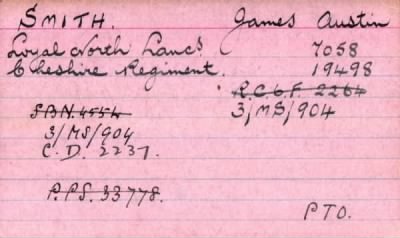 SMITH. James Austin
Loyal North Lancs 7058
Cheshire Regiment. 19498
R.C.6.F. 2264
S.B.N. 4554 3/MS/904
3/MS/904
C.D. 2237.
P.P.S. 33778.
PTO.